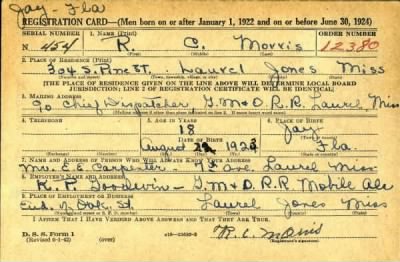 Jay - Fla
REGISTRATION CARD—(Men born on or after January 1, 1922 and on or before June 30, 1924)
SERIAL NUMBER 1. NAME (Print) ORDER NUMBER
N 454 R. C. Morris 12380
(First) (Middle) (Last)
2. PLACE OF RESIDENCE (Print)
304 S. Pine St. Laurel Jones Miss
[THE PLACE OF RESIDENCE GIVEN ON THE LINE ABOVE WILL DETERMINE LOCAL BOARD
JURISDICTION; LINE 2 OF REGISTRATION CERTIFICATE WILL BE IDENTICAL]
3. MAILING ADDRESS
c/o Chief Dispatcher G. M & O. R. R. Laurel Miss
4. TELEPHONE 5. AGE IN YEARS 6. PLACE OF BIRTH
18 Jay
DATE OF BIRTH
August 1923 Fla.
7. NAME AND ADDRESS OF PERSON WHO WILL ALWAYS KNOW YOUR ADDRESS
E. Carpenter - 7th Ave. Laurel Miss
8. EMPLOYER'S NAME AND ADDRESS
K. P. Goodwin - G. M & O. R. R. Mobile Ala
9. PLACE OF EMPLOYMENT OR BUSINESS
End of Oak St. Laurel Jones Miss
I AFFIRM THAT I HAVE VERIFIED ABOVE ANSWERS AND THAT THEY ARE TRUE.
D. S. S. Form 1
R. C. Morris
(Registrant's signature)